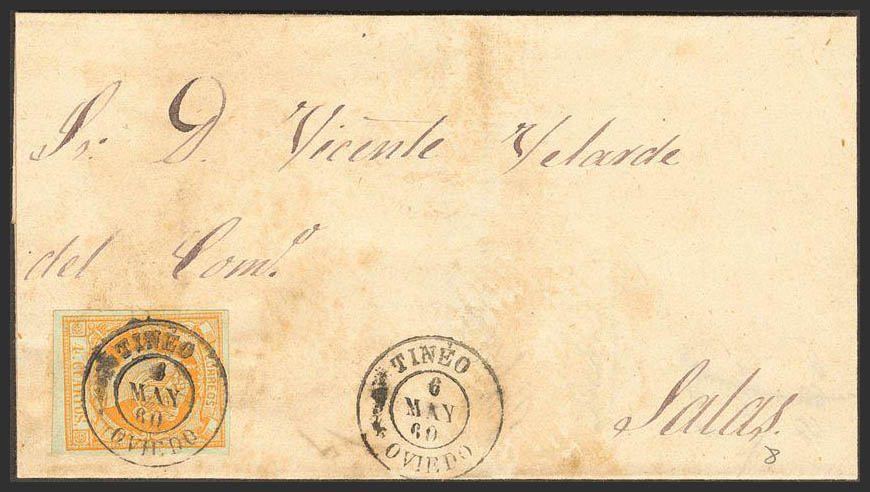 Sr. D. Vicente Velarde
del Comº.
Salas.
CORREOS
4 CUARTOS
TINEO
6
MAY
60
OVIEDO
TINEO
6
MAY
60
OVIEDO
8